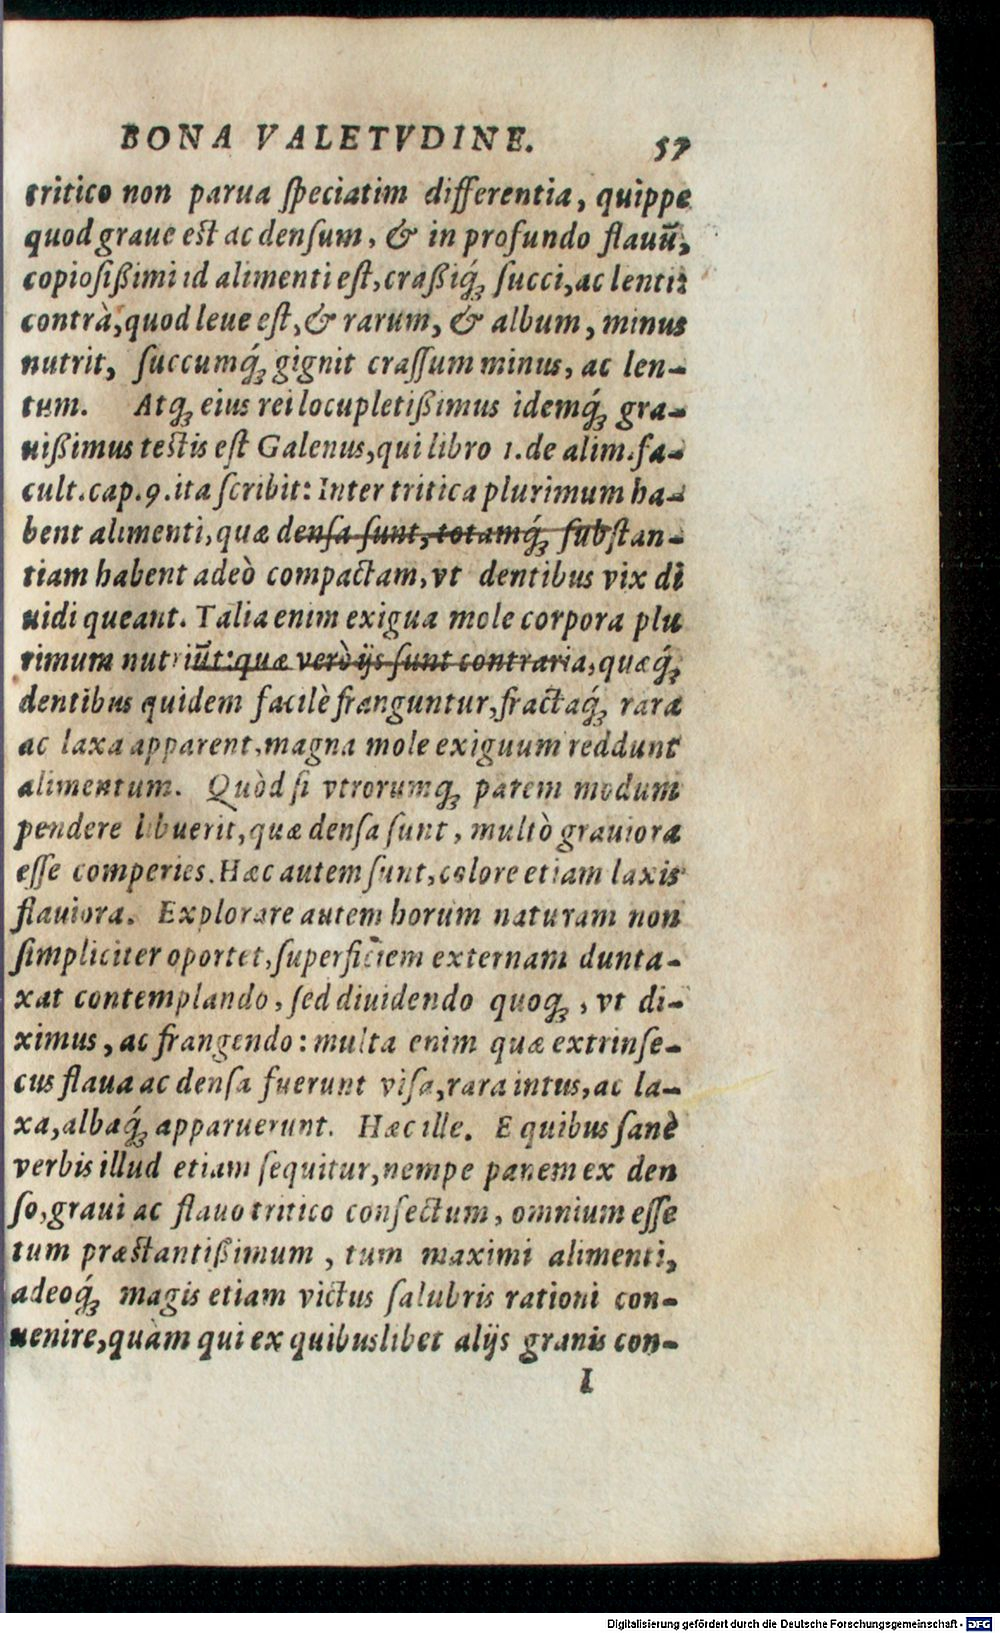 BONA VALETVDINE. 57
tritico non parua ſpeciatim differentia, quippe
quod graue est ac denſum, & in profundo flauũ,
copioſißimi id alimenti eſt, craßiq́ʒ ſucci, ac lenti:
contrà, quod leue eſt, & rarum, & album, minus
nutrit, ſuccumq́ʒ gignit craſſum minus, ac len-
tum. Atqʒ eius rei locupletißimus idemq́ʒ gra-
uißimus testis eſt Galenus, qui libro 1. de alim. fa-
cult. cap. 9. ita ſcribit: Inter tritica plurimum ha-
bent alimenti, quæ denſa ſunt, totamq́ʒ ſubſtan-
tiam habent adeò compactam, vt dentibus vix di
uidi queant. Talia enim exigua mole corpora plu
rimum nutriũt: quæ verò ijs ſunt contraria, quæq́ʒ
dentibus quidem facilè franguntur, fractaq́ʒ rara
ac laxa apparent, magna mole exiguum reddunt
alimentum. Quòd ſi vtrorumqʒ parem modum
pendere libuerit, quæ denſa ſunt, multò grauiora
eſſe comperies. Hæc autem ſunt, colore etiam laxis
flauiora. Explorare autem horum naturam non
ſimpliciter oportet, ſuperficiem externam dunta-
xat contemplando, ſed diuidendo quoqʒ, vt di-
ximus, ac frangendo: multa enim quæ extrinſe-
cus flaua ac denſa fuerunt viſa, rara intus, ac la-
xa, albaq́ʒ apparuerunt. Hæc ille. E quibus ſanè
verbis illud etiam ſequitur, nempe panem ex den
ſo, graui ac flauo tritico confectum, omnium eſſe
tum præstantißimum, tum maximi alimenti,
adeoq́ʒ magis etiam victus ſalubris rationi con-
uenire, quàm qui ex quibuslibet alijs granis con-
I
Digitalisierung gefördert durch die Deutsche Forschungsgemeinschaft - DFG